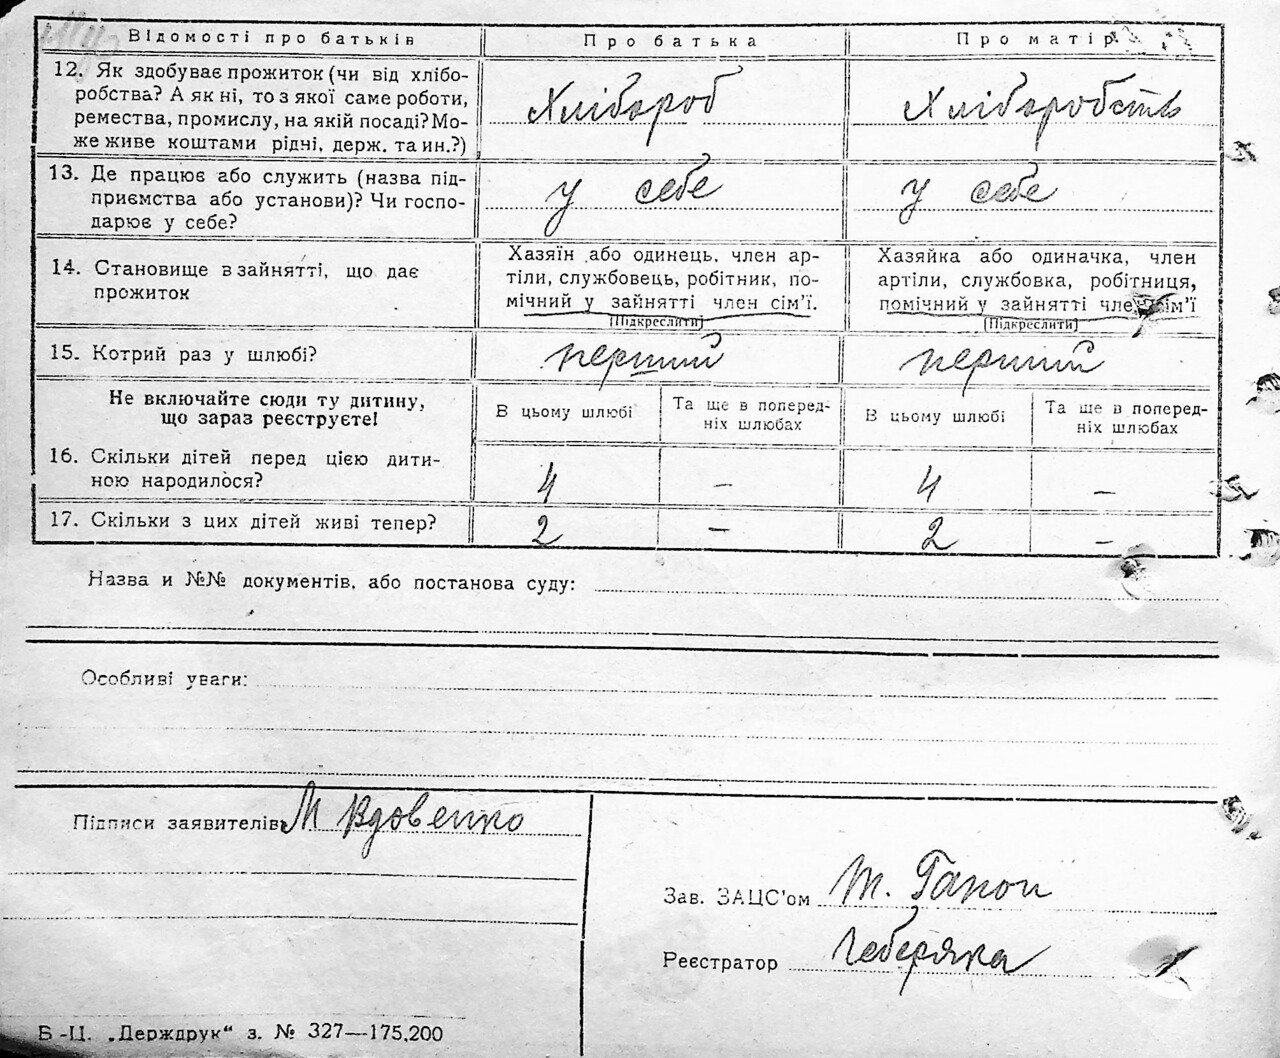 Відомості про батьків Про батька Про матір
12. Як здобуває прожиток (чи від хлібо-
робства? А як ні, то з якої саме роботи,
ремества, промислу, на якій посаді? Мо-
же живе коштами рідні, держ. та ин.?)
Хлібороб Хліборобств
13. Де працює або служить (назва під-
приємства або установи)? Чи госпо-
дарює у себе?
у себе у себе
14. Становище в зайнятті, що дає
прожиток
Хазяїн або одинець, член ар-
тіли, службовець, робітник, по-
мічний у зайнятті член сім'ї.
[Підкреслити]
Хазяйка або одиначка, член
артіли, службовка, робітниця,
помічний у зайнятті член сім'ї
[Підкреслити]
15. Котрий раз у шлюбі? перший перший
Не включайте сюди ту дитину,
що зараз реєструєте!
В цьому шлюбі Та ще в поперед-
ніх шлюбах В цьому шлюбі Та ще в поперед-
ніх шлюбах
16. Скільки дітей перед цією дити-
ною народилося?
4 – 4 –
17. Скільки з цих дітей живі тепер? 2 – 2 –
Назва и №№ документів, або постанова суду:
Особливі уваги:
Підписи заявителів М Вдовенко
Зав. ЗАЦС'ом Т. Гапон
Реєстратор Чеберяка
Б-Ц. „Держдрук“ з. № 327—175.200